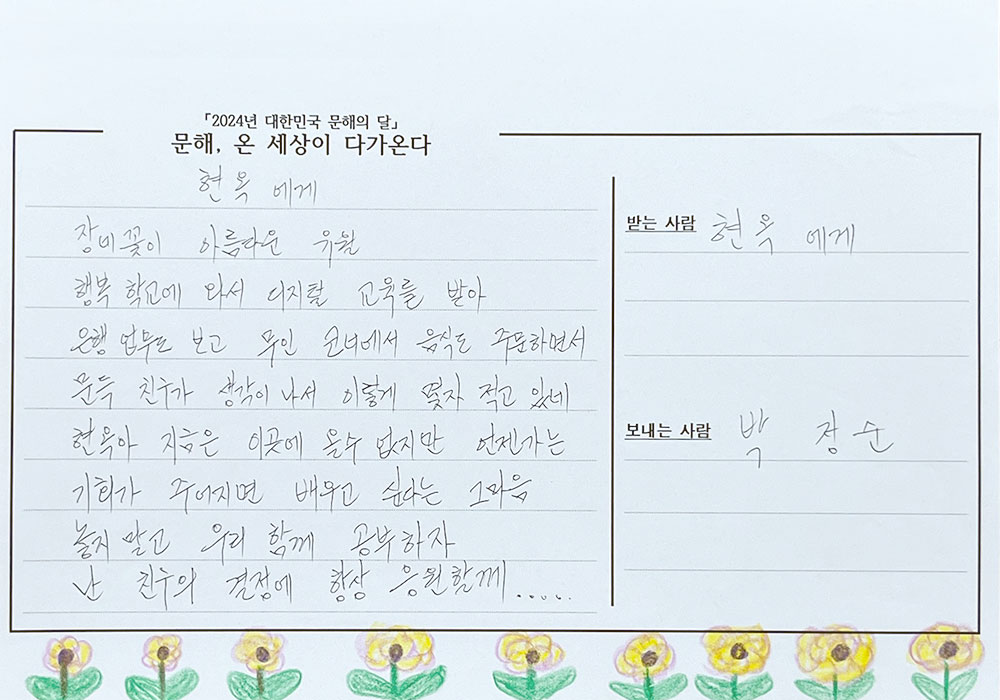 「2024년 대한민국 문해의 달」
문해, 온 세상이 다가온다
현옥 에게
장미꽃이 아름다운 유월
행복 학교에 와서 디지털 교육를 받아
은행 업무도 보고 무인 코너에서 음식도 주문하면서
문득 친구가 생각이 나서 이렇게 몇자 적고 있네
현옥아 지금은 이곳에 올수 없지만 언젠가는
기회가 주어지면 배우고 싶다는 그마음
놓지 말고 우리 함께 공부하자
난 친구의 결정에 항상 응원할께.....
받는 사람 현옥 에게
보내는 사람 박 장순